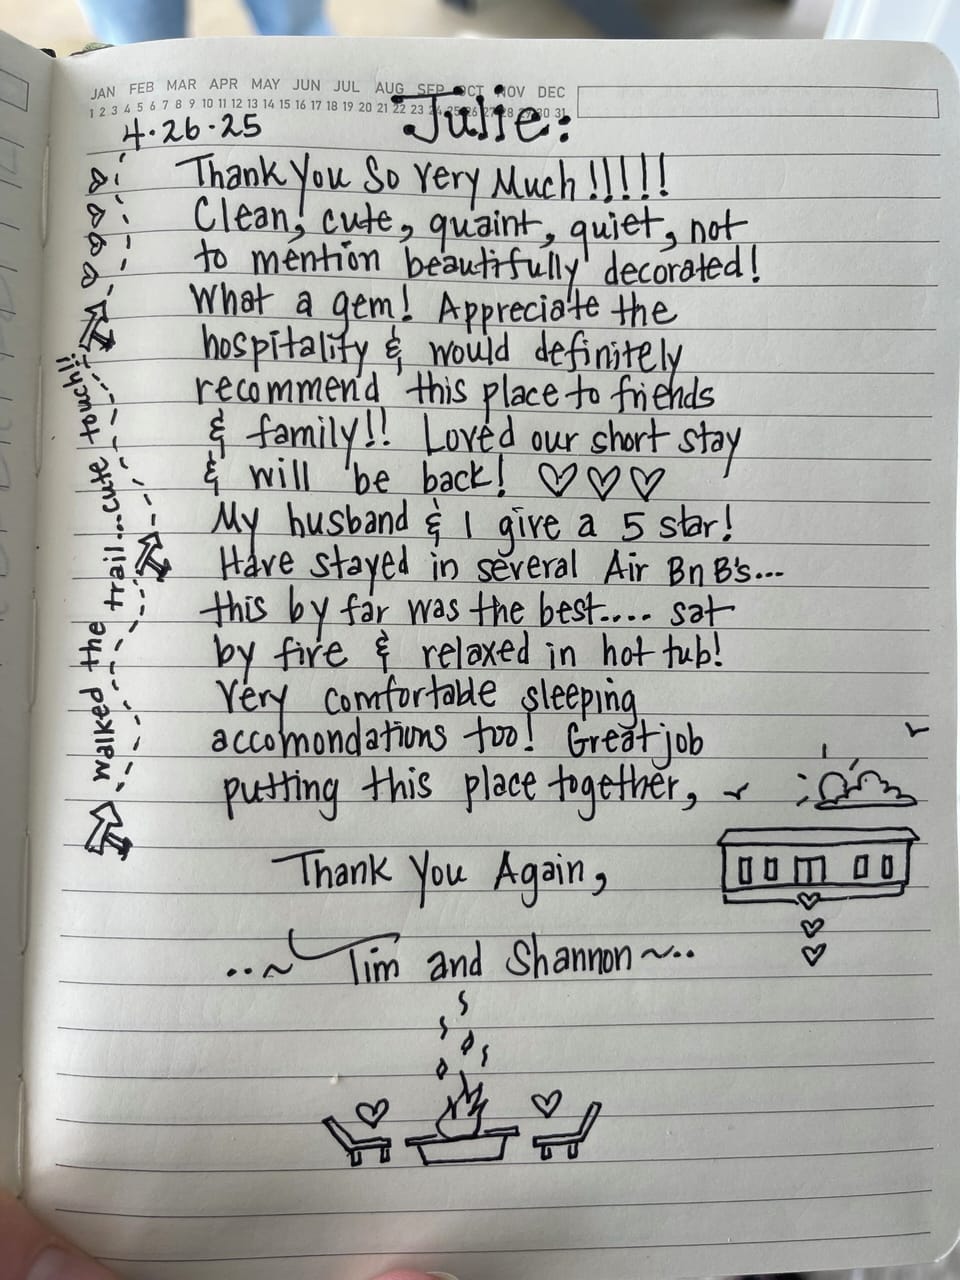 JAN FEB MAR APR MAY JUN JUL AUG SEP OCT NOV DEC
1 2 3 4 5 6 7 8 9 10 11 12 13 14 15 16 17 18 19 20 21 22 23 24 25 26 27 28 29 30 31
4.26.25 Julie:
Thank You So Very Much!!!!!
Clean, cute, quaint, quiet, not
to mention beautifully decorated!
What a gem! Appreciate the
hospitality & would definitely
recommend this place to friends
& family!! Loved our short stay
& will be back! ♡♡♡
My husband & I give a 5 star!
Have stayed in several Air BnB's...
this by far was the best.... sat
by fire & relaxed in hot tub!
Very comfortable sleeping
accomondations too! Great job
putting this place together,
Thank You Again,
..~ Tim and Shannon ~..
walked the trail...cute touch!!